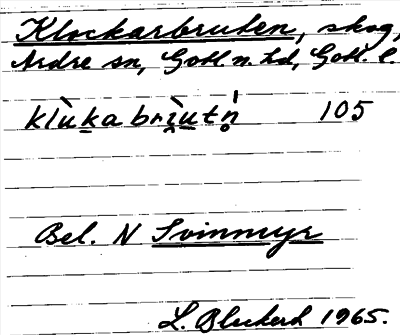 Klockarbruten, skog,
Ardre sn, Gotl. n. hd, Gotl. l.
105
Bel. N Svinmyr
1965.